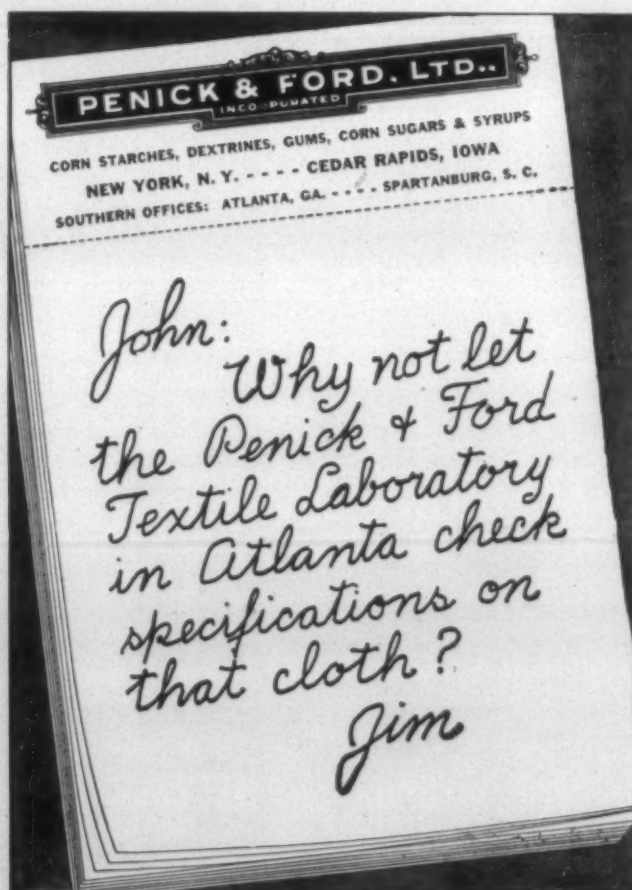 PENICK & FORD, LTD..
INCORPORATED
CORN STARCHES, DEXTRINES, GUMS, CORN SUGARS & SYRUPS
NEW YORK, N. Y. - - - - - CEDAR RAPIDS, IOWA
SOUTHERN OFFICES: ATLANTA, GA. - - - - SPARTANBURG, S. C.
John:
Why not let
the Penick & Ford
Textile Laboratory
in Atlanta check
specifications on
that cloth?
Jim